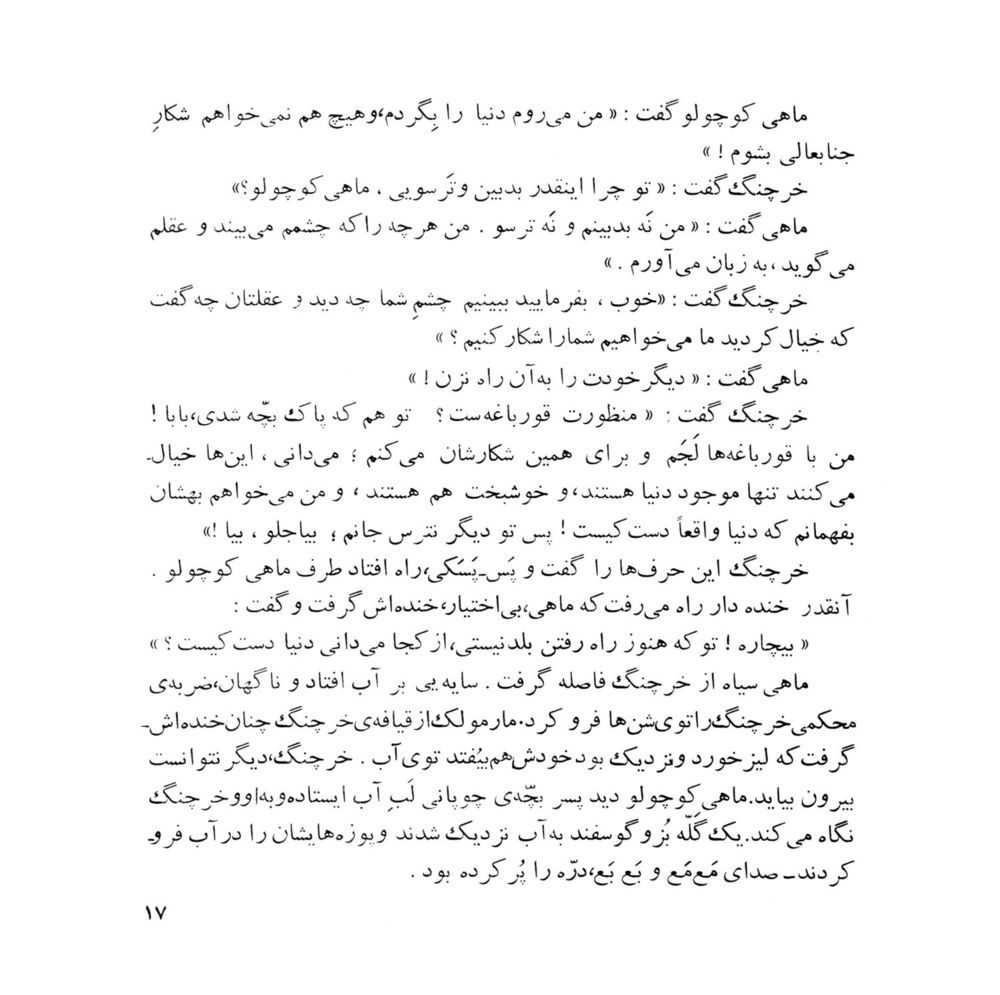 ماهی کوچولو گفت : « من می‌روم دنیا را بِگردم،وهیچ هم نمی‌خواهم شکارِ
جنابعالی بشوم ! »
خرچنگ گفت : « تو چرا اینقدر بدبین وتَرسویی ، ماهی کوچولو؟»
ماهی گفت : « من نَه بدبینم و نَه ترسو . من هرچه را که چشمم می‌بیند و عقلم
می‌گوید ، به زبان می‌آورم . »
خرچنگ گفت : «خوب ، بفرمایید ببینیم چشمِ شما چه دید و عقلتان چه گفت
که خیال کردید ما می‌خواهیم شمارا شکار کنیم ؟ »
ماهی گفت : « دیگر خودت را به آن راه نزن ! »
خرچنگ گفت : « منظورت قورباغه‌ست ؟ تو هم که پاک بچّه شدی،بابا !
من با قورباغه‌ها لَجَم و برای همین شکارشان می‌کنم ؛ می‌دانی ، این‌ها خیال‌ـ
می‌کنند تنها موجود دنیا هستند،و خوشبخت هم هستند ، و من می‌خواهم بهشان
بفهمانم که دنیا واقعاً دست کیست ! پس تو دیگر نترس جانم ؛ بیاجلو ، بیا !»
خرچنگ این حرف‌ها را گفت و پَس‌ـ‌پَسَکی،راه افتاد طرف ماهی کوچولو .
آنقدر خنده دار راه می‌رفت که ماهی،بی‌اختیار،خنده‌اش گرفت و گفت :
« بیچاره ! تو که هنوز راه رفتن بلدنیستی،از کجا می‌دانی دنیا دست کیست ؟ »
ماهی سیاه از خرچنگ فاصله گرفت . سایه‌یی بر آب افتاد و ناگهان،ضربه‌ی
محکمی خرچنگ راتوی شن‌ها فرو کرد.مارمولک از قیافه‌ی خرچنگ چنان خنده‌اش‌ـ
گرفت که لیز خورد و نزدیک بود خودش هم بیُفتد توی آب . خرچنگ،دیگر نتوانست
بیرون بیاید.ماهی کوچولو دید پسر بچّه‌ی چوپانی لَبِ آب ایستاده و به او و خرچنگ
نگاه می‌کند.یک گَلّه بُز و گوسفند به آب نزدیک شدند و پوزه‌هایشان را در آب فروـ
کردند‌ـ صدای مَع‌مَع و بَع بَع،درّه را پُر کرده بود .
۱۷